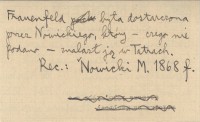 Frauenfeld była dostarczona
przez Nowickiego, który – czego nie
podano – znalazł ją w Tatrach.
Rec.: Nowicki M. 1868 f.